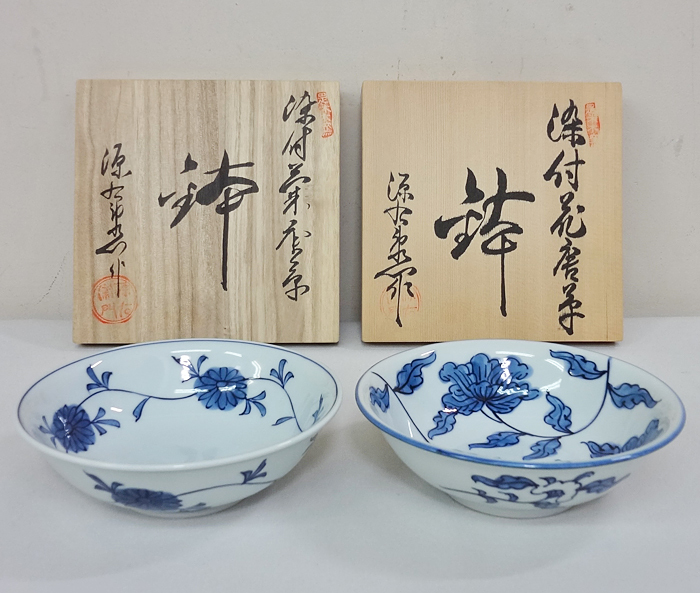 染付菊唐草
鉢
源右衛門作
染付花唐草
鉢
源右衛門作